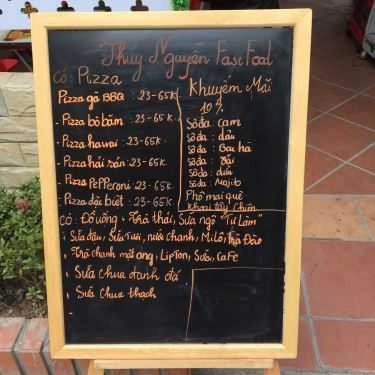 Thúy Nguyên Fast Food
Có Pizza
Pizza gà BBQ : 23-65K
Pizza bò băm : 23-65K.
Pizza hawai : 23-65K.
Pizza hải sản : 23-65K
Pizza PePPeroni : 23-65K
Pizza đặc biệt : 23-65K.
Khuyếm Mãi
10%
Sôda : cam
sôda : dâu
Sôda : Bạc hà
sôda :
sôda : dừa
Sôda : Mojito
Phô mai que
Khoai tây Chiên
Có : Đồ uống : Trà thái, Sữa ngô "Tự Làm"
Sữa đậu, Sữa Tươi, nước chanh, MiLô, Trà Đào
Trà chanh mật ong, LipTon, Sữa, CaFe
Sữa chua đánh đá
Sữa chua thạch